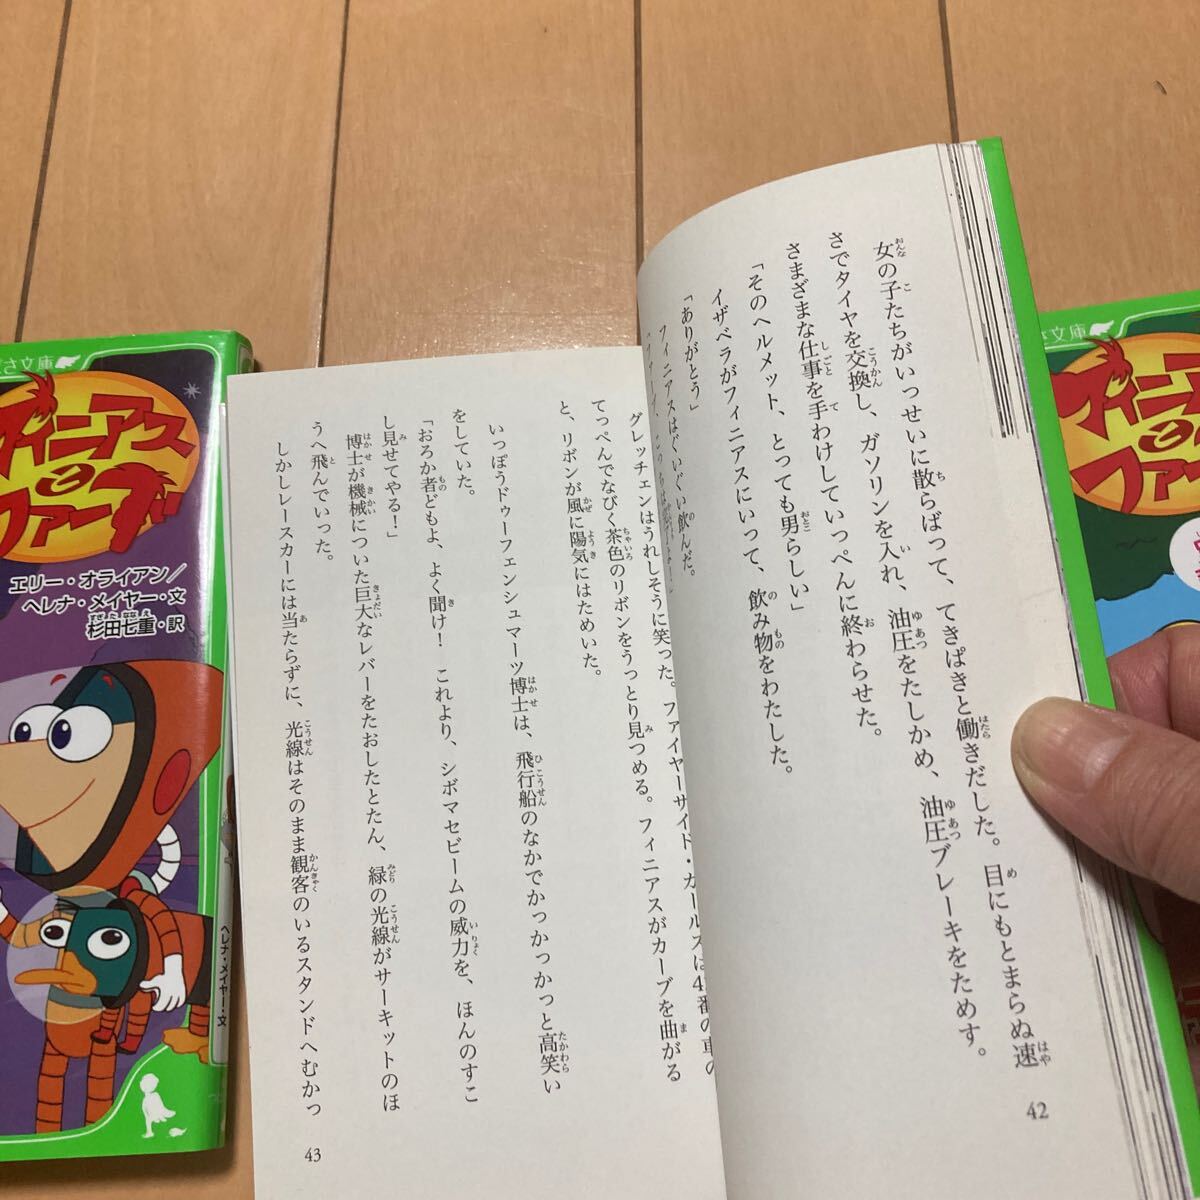 女の子たちがいっせいに散らばって、てきぱきと働きだした。目にもとまらぬ速
さでタイヤを交換し、ガソリンを入れ、油圧をたしかめ、油圧ブレーキをためす。
さまざまな仕事を手わけしていっぺんに終わらせた。
「そのヘルメット、とっても男らしい」
イザベラがフィニアスにいって、飲み物をわたした。
「ありがとう」
フィニアスはぐいぐい飲んだ。
42
グレッチェンはうれしそうに笑った。ファイヤーサイド・ガールズは4番の車の
てっぺんでなびく茶色のリボンをうっとり見つめる。フィニアスがカーブを曲がる
と、リボンが風に陽気にはためいた。
いっぽうドゥーフェンシュマーツ博士は、飛行船のなかでかっかっかっと高笑い
をしていた。
「おろか者どもよ、よく聞け！　これより、シボマセビームの威力を、ほんのすこ
し見せてやる！」
博士が機械についた巨大なレバーをたおしたとたん、緑の光線がサーキットのほ
うへ飛んでいった。
しかしレースカーには当たらずに、光線はそのまま観客のいるスタンドへむかっ
43
さ文庫
フィニアス
と
ファーブ
エリー・オライアン／
ヘレナ・メイヤー・文
杉田七重・訳
ヘレナ・メイヤー・文
文庫
フィニアス
と
ファー